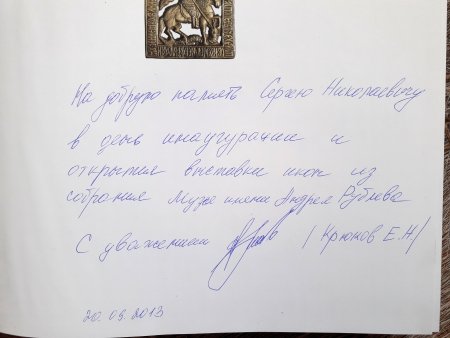 На добрую память Сергею Николаевичу
в день инаугурации и
открытия выставки икон из
собрания Музея имени Андрея Рублева
С уважением /Крюков Е.Н/
20.09.2013